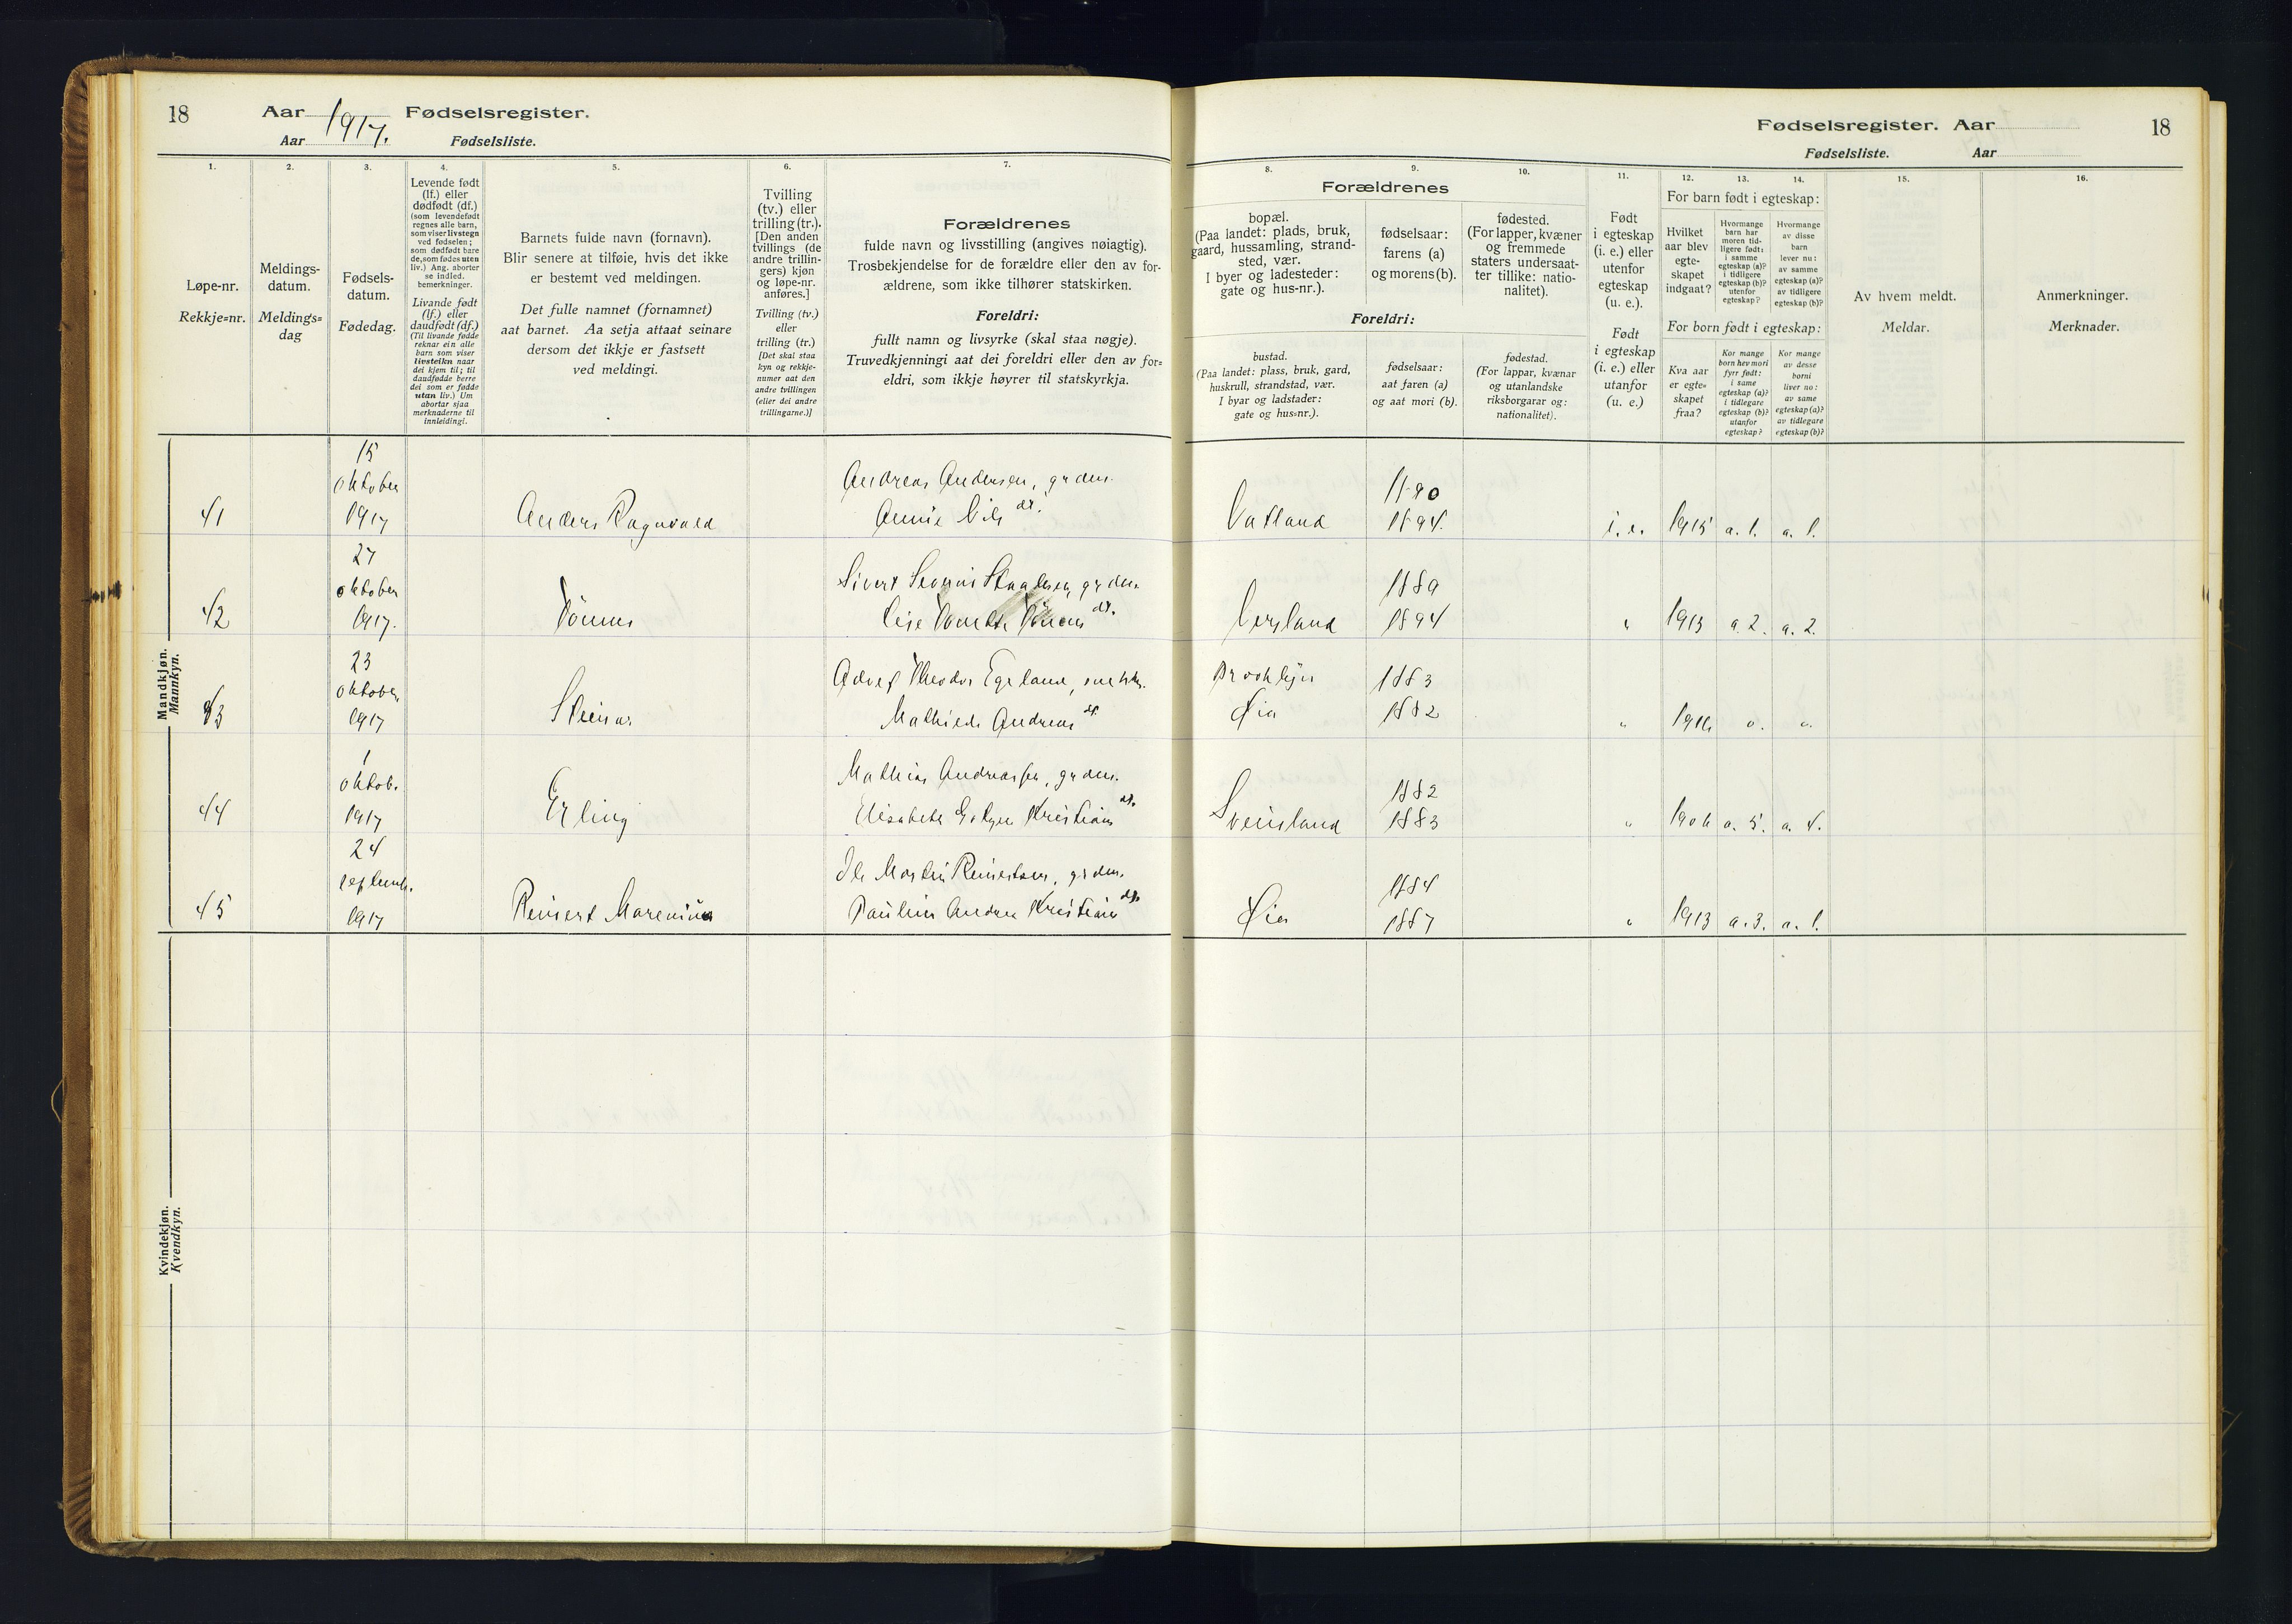 18
Aar 1917. Fødselsregister.
Aar Fødselsliste.
1.
2.
3.
4.
5.
6.
7.
Løpe-nr.
Rekkje=nr.
Meldings-
datum.
Meldings=
dag
Fødsels-
datum.
Fødedag.
Levende født
(lf.) eller
dødfødt (df.)
(som levendefødt
regnes alle barn,
som viser livstegn
ved fødselen;
som dødfødt bare
de, som fødes uten
liv.) Ang. aborter
se indled.
bemerkninger.
Livande født
(lf.) eller
daudfødt (df.)
(Til livande fødde
reknar ein alle
barn som viser
livsteikn naar
dei kjem til; til
daudfødde berre
dei som er fødde
utan liv.) Um
abortar sjaa
merknaderne til
innleidingi.
Barnets fulde navn (fornavn).
Blir senere at tilføie, hvis det ikke
er bestemt ved meldingen.
Det fulle namnet (fornamnet)
aat barnet. Aa setja attaat seinare
dersom det ikkje er fastsett
ved meldingi.
Tvilling
(tv.) eller
trilling (tr.).
[Den anden
tvillings (de
andre trillin-
gers) kjøn
og løpe-nr.
anføres.]
Tvilling (tv.)
eller
trilling (tr.)
[Det skal staa
kyn og rekkje-
numer aat den
andre tvillingen
(eller dei andre
trillingarne.)]
Forældrenes
fulde navn og livsstilling (angives nøiagtig).
Trosbekjendelse for de forældre eller den av for-
ældrene, som ikke tilhører statskirken.
Foreldri:
fullt namn og livsyrke (skal staa nøgje).
Truvedkjenningi aat dei foreldri eller den av for=
eldri, som ikkje høyrer til statskyrkja.
Mandkjøn.
Mannkyn.
41
15
oktober
1917
Anders Ragnvald
Andreas Andersen, grdm.
Annie Nils dt.
42
27
oktober
1917.
Tönnes
Sivert Severin Staalesen, grdm.
43
23
oktober
1917
Steinar
Adolf Theodor Egeland, snekker.
Mathilde Andreas dt.
44
1
oktob.
1917
Erling
Mathias Andreassen, grdm.
Elisabeth Kristians dt.
45
24
septemb.
1917
Reinert Marenius
Ole Martin Reinertsen, grdm.
Pauline Andrea Kristians dt.
Kvindekjøn.
Kvendkyn.
Fødselsregister. Aar
18
Fødselsliste. Aar
8.
9.
10.
11.
12.
13.
14.
15.
16.
Forældrenes
bopæl.
(Paa landet: plads, bruk,
gaard, hussamling, strand-
sted, vær.
I byer og ladesteder:
gate og hus-nr.).
fødselsaar:
farens (a)
og morens (b).
fødested.
(For lapper, kvæner
og fremmede
staters undersaat-
ter tillike: natio-
nalitet).
Foreldri:
bustad.
(Paa landet: plass, bruk, gard,
huskrull, strandstad, vær.
I byar og ladstader:
gate og hus=nr.).
fødselsaar:
aat faren (a)
og aat mori (b).
fødestad.
(For lappar, kvænar
og utanlandske
riksborgarar og:
nationalitet).
Født
i egteskap
(i. e.) eller
utenfor
egteskap
(u. e.).
Født
i egteskap
(i. e.) eller
utanfor
(u. e.)
For barn født i egteskap:
Hvilket
aar blev
egte-
skapet
indgaat?
Hvormange
barn har
moren tid-
ligere født:
i samme
egteskap (a)?
i tidligere
egteskap (b)?
utenfor
egteskap?
Hvormange
av disse
barn
lever nu:
av samme
egteskap (a)?
av tidligere
egteskap (b)?
For born født i egteskap:
Kva aar
er egte=
skapet
fraa?
Kor mange
born hev mori
fyrr født:
i same
egteskap (a)?
i tidlegare
egteskap (b)?
utanfor
egteskap?
Kor mange
av desse
borni
liver no:
av same
egteskap (a)?
av tidlegare
egteskap (b)?
Av hvem meldt.
Meldar.
Anmerkninger.
Merknader.
Vatland
1890
1894.
i. e.
1915
a. 1.
a. 1.
1889
1894
"
1913
a. 2.
a. 2.
Brooklyn
1883
Øia
1882
"
1916
o.
o.
Sveinsland
1882
1883
"
1906
a. 5.
a. 4.
Øia
1884
1887
"
1913
a. 3.
a. 1.